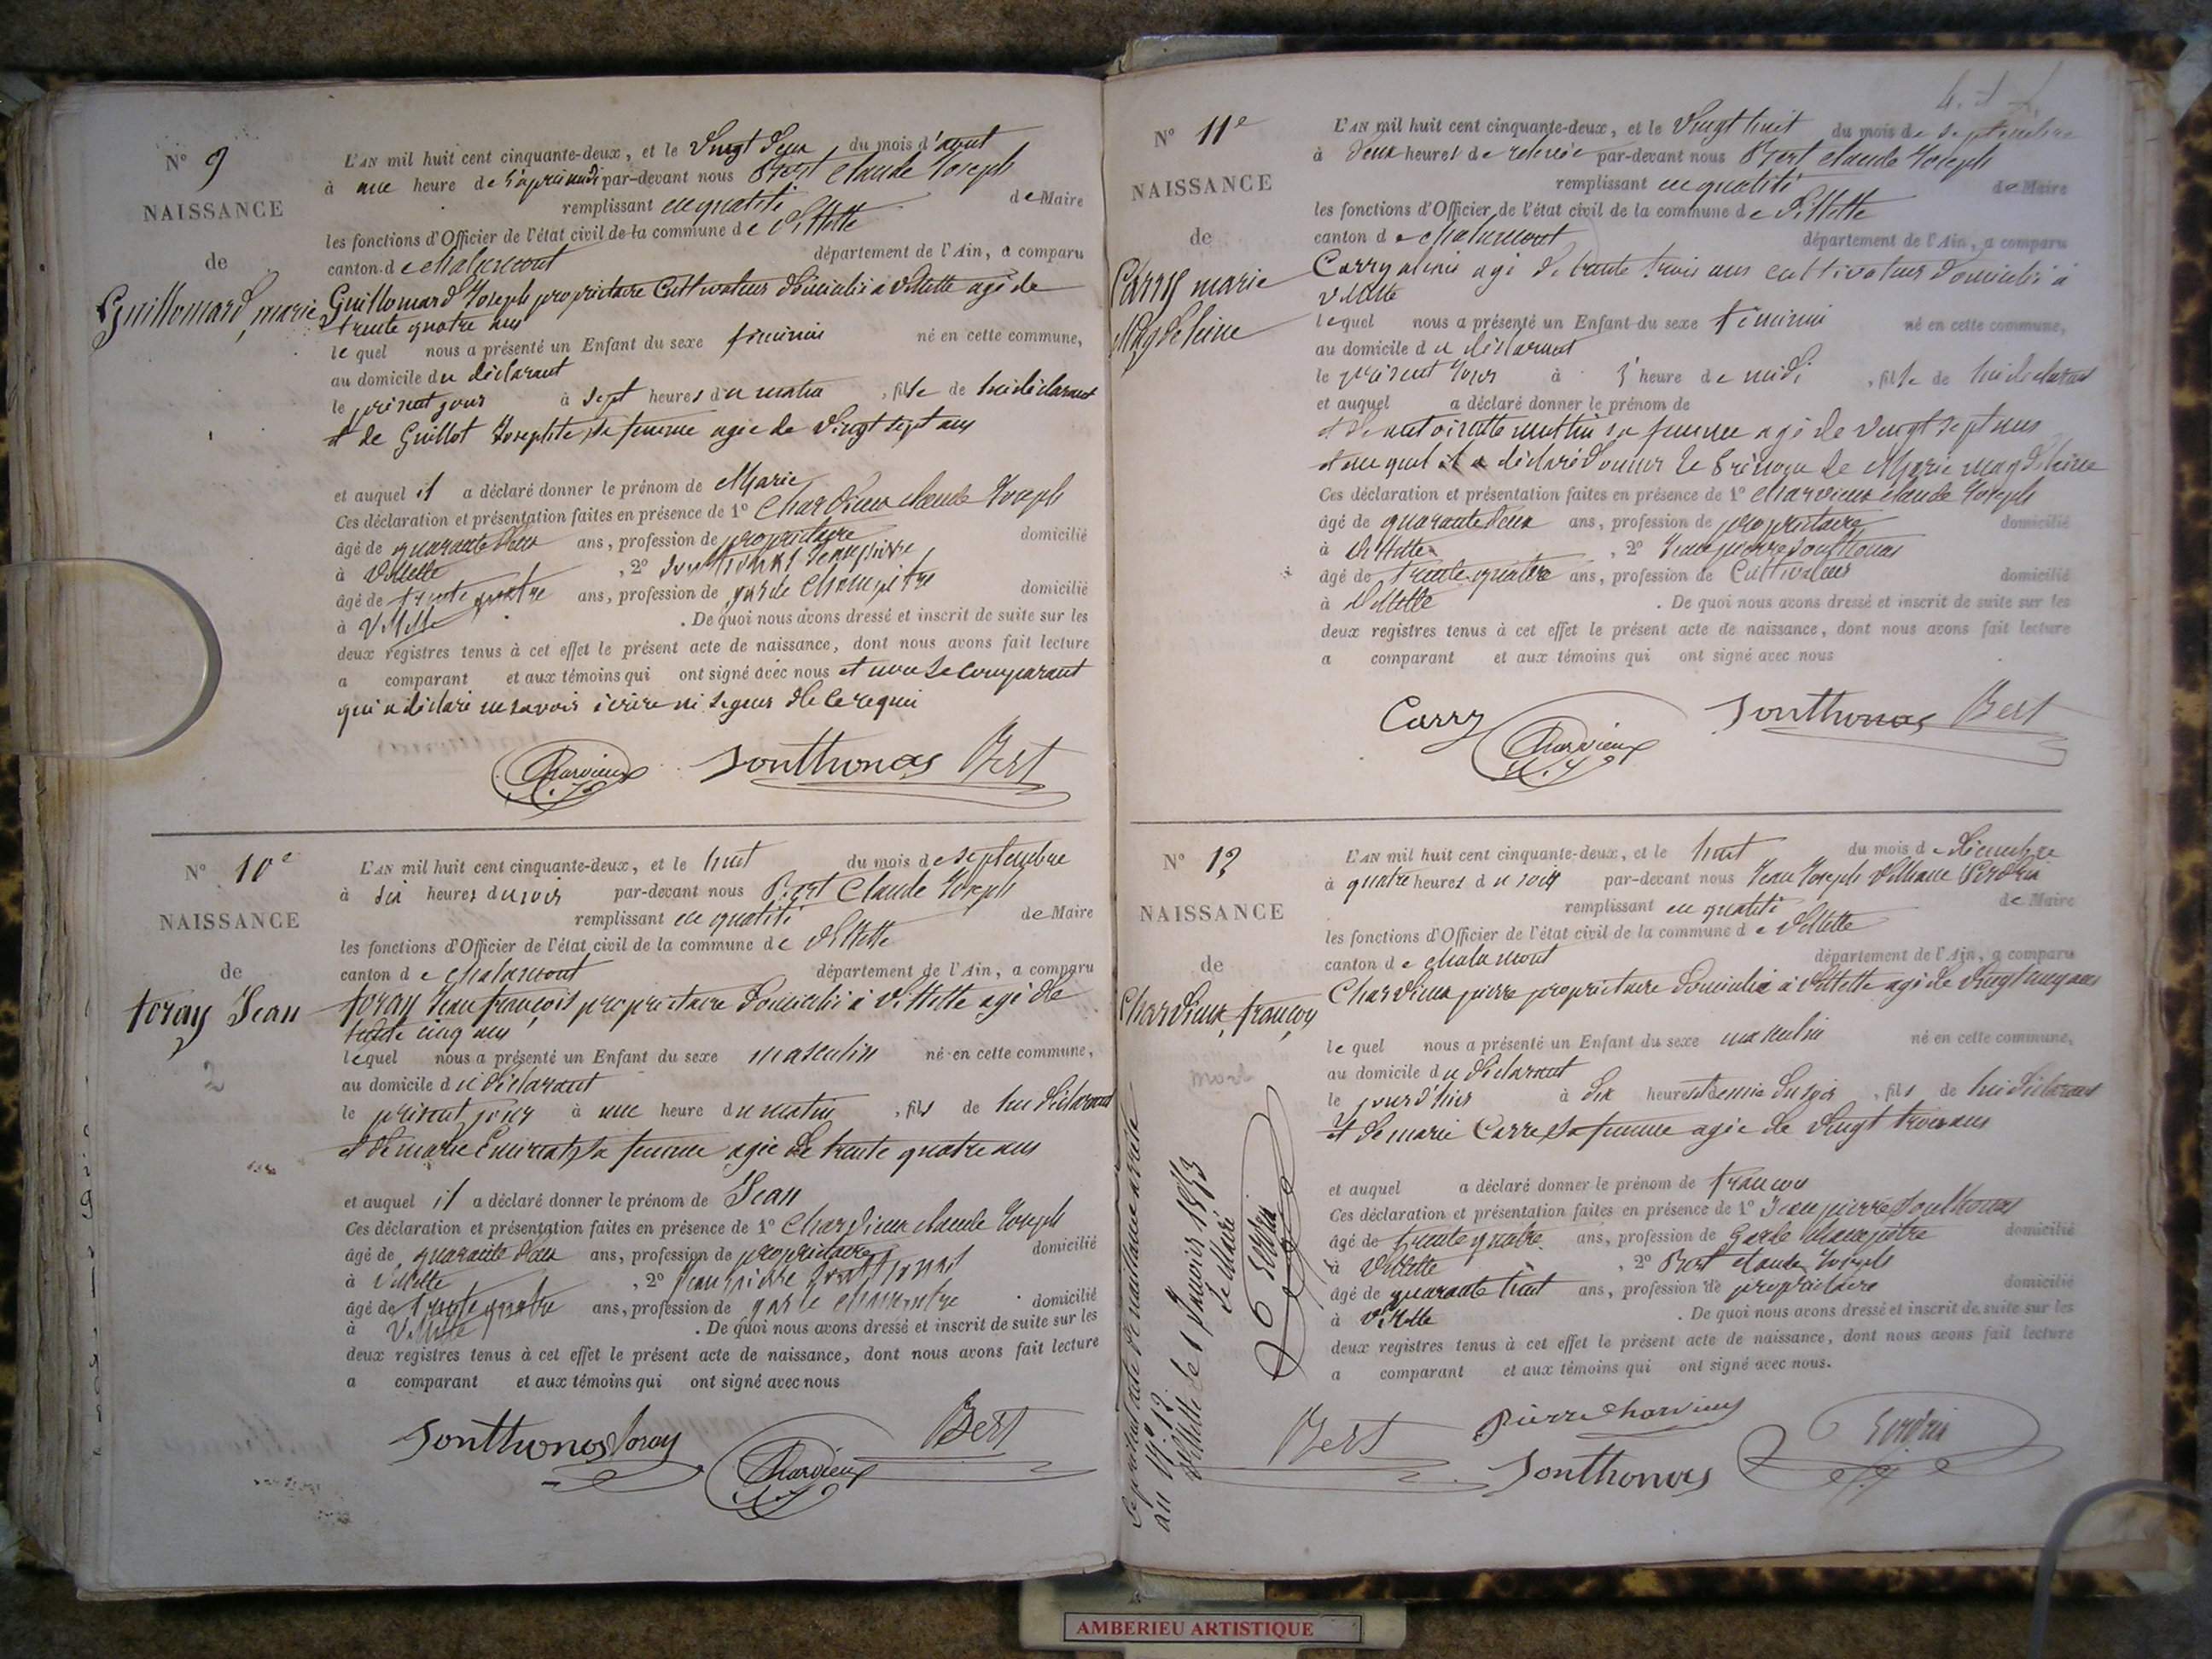 N° 9
NAISSANCE
de
Guillomard, marie
L'AN mil huit cent cinquante-deux, et le Vingt deux du mois d'aout
à une heure de l'après midi par-devant nous Bert Claude Joseph
remplissant en qualité de Maire
les fonctions d'Officier de l'état civil de la commune de Villette
canton de chalamont département de l'Ain, a comparu
Guillomard Joseph propriétaire Cultivateur domicilié a Villette agé de
trente quatre ans
lequel nous a présenté un Enfant du sexe féminin né en cette commune,
au domicile du déclarant
le présent jour à sept heures du matin, fille de lui déclarant
et de Guillot Josephte sa femme agée de Vingt sept ans
et auquel il a déclaré donner le prénom de Marie
Ces déclaration et présentation faites en présence de 1° Charvieux claude Joseph
âgé de quarante deux ans, profession de propriétaire domicilié
à Villette, 2° Sonthonas Jean pierre
âgé de trente quatre ans, profession de garde champêtre domicilié
à Villette. De quoi nous avons dressé et inscrit de suite sur les
deux registres tenus à cet effet le présent acte de naissance, dont nous avons fait lecture
a comparant et aux témoins qui ont signé avec nous et non le comparant
qui a déclaré ne savoir écrire ni signer de ce requi
Charvieux Sonthonas Bert
N° 10e
NAISSANCE
de
foray Jean
2
L'AN mil huit cent cinquante-deux, et le huit du mois de septembre
à six heures du soir par-devant nous Bert Claude Joseph
remplissant en qualité de Maire
les fonctions d'Officier de l'état civil de la commune de Villette
canton de chalamont département de l'Ain, a comparu
foray Jean françois propriétaire domicilié à Villette agé de
trente cinq ans
lequel nous a présenté un Enfant du sexe masculin né en cette commune,
au domicile du déclarant
le présent jour à une heure du matin, fils de lui déclarant
et de marie sa femme agée de trente quatre ans
et auquel il a déclaré donner le prénom de Jean
Ces déclaration et présentation faites en présence de 1° Charvieux claude Joseph
âgé de quarante deux ans, profession de propriétaire domicilié
à Villette, 2° Jean pierre Sonthonas
âgé de trente quatre ans, profession de garde champêtre domicilié
à Villette. De quoi nous avons dressé et inscrit de suite sur les
deux registres tenus à cet effet le présent acte de naissance, dont nous avons fait lecture
a comparant et aux témoins qui ont signé avec nous
Sonthonas foray Charvieux Bert
N° 11e
NAISSANCE
de
Carry marie
Magdeleine
L'AN mil huit cent cinquante-deux, et le Vingt huit du mois de septembre
à deux heures de relevée par-devant nous Bert claude Joseph
remplissant en qualité de Maire
les fonctions d'Officier de l'état civil de la commune de Villette
canton de chalamont département de l'Ain, a comparu
Carry agé de trente trois ans cultivateur domicilié à
Villette
lequel nous a présenté un Enfant du sexe féminin né en cette commune,
au domicile du déclarant
le présent jour à heure de midi, fille de lui déclarant
et auquel a déclaré donner le prénom de
et de sa femme agé de vingt sept ans
et au quel il a déclaré donner le prénom de Marie magdeleine
Ces déclaration et présentation faites en présence de 1° Charvieux claude Joseph
âgé de quarante deux ans, profession de propriétaire domicilié
à Villette, 2° Jean pierre Sonthonas
âgé de trente quatre ans, profession de Cultivateur domicilié
à Villette. De quoi nous avons dressé et inscrit de suite sur les
deux registres tenus à cet effet le présent acte de naissance, dont nous avons fait lecture
a comparant et aux témoins qui ont signé avec nous
Carry Charvieux Sonthonas Bert
N° 12
NAISSANCE
de
Charvieux, françois
L'AN mil huit cent cinquante-deux, et le huit du mois de décembre
à quatre heures du soir par-devant nous Jean Joseph
remplissant en qualité de Maire
les fonctions d'Officier de l'état civil de la commune de Villette
canton de chalamont département de l'Ain, a comparu
Charvieux pierre propriétaire domicilié à Villette agé de vingt cinq ans
lequel nous a présenté un Enfant du sexe masculin né en cette commune,
au domicile du déclarant
le jour d'hier à six heures et demie du soir, fils de lui déclarant
et de marie Carre sa femme agée de vingt trois ans
et auquel a déclaré donner le prénom de françois
Ces déclaration et présentation faites en présence de 1° Jean pierre Sonthonas
âgé de trente quatre ans, profession de Garde champêtre domicilié
à Villette, 2° Bert claude Joseph
âgé de quarante huit ans, profession de propriétaire domicilié
à Villette. De quoi nous avons dressé et inscrit de suite sur les
deux registres tenus à cet effet le présent acte de naissance, dont nous avons fait lecture
a comparant et aux témoins qui ont signé avec nous.
Bert pierre charvieux Sonthonas
acte de naissance arrété
au N° 12
Villette le 1 Janvier 1853
Le Maire
AMBERIEU ARTISTIQUE